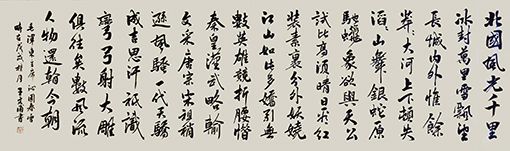 北國風光千里
冰封萬里雪飄望
長城內外惟餘
莽〻大河上下頓失
滔〻山舞銀蛇原
馳蠟象欲與天公
試比高須晴日看紅
裝素裹分外妖嬈
江山如此多嬌引無
數英雄競折腰惜
秦皇漢武略輸
文采唐宗宋祖稍
遜風騷一代天驕
成吉思汗祇識
彎弓射大雕
俱往矣數風流
人物還看今朝
毛澤東主席沁園春雪
時在戊戌秋月書